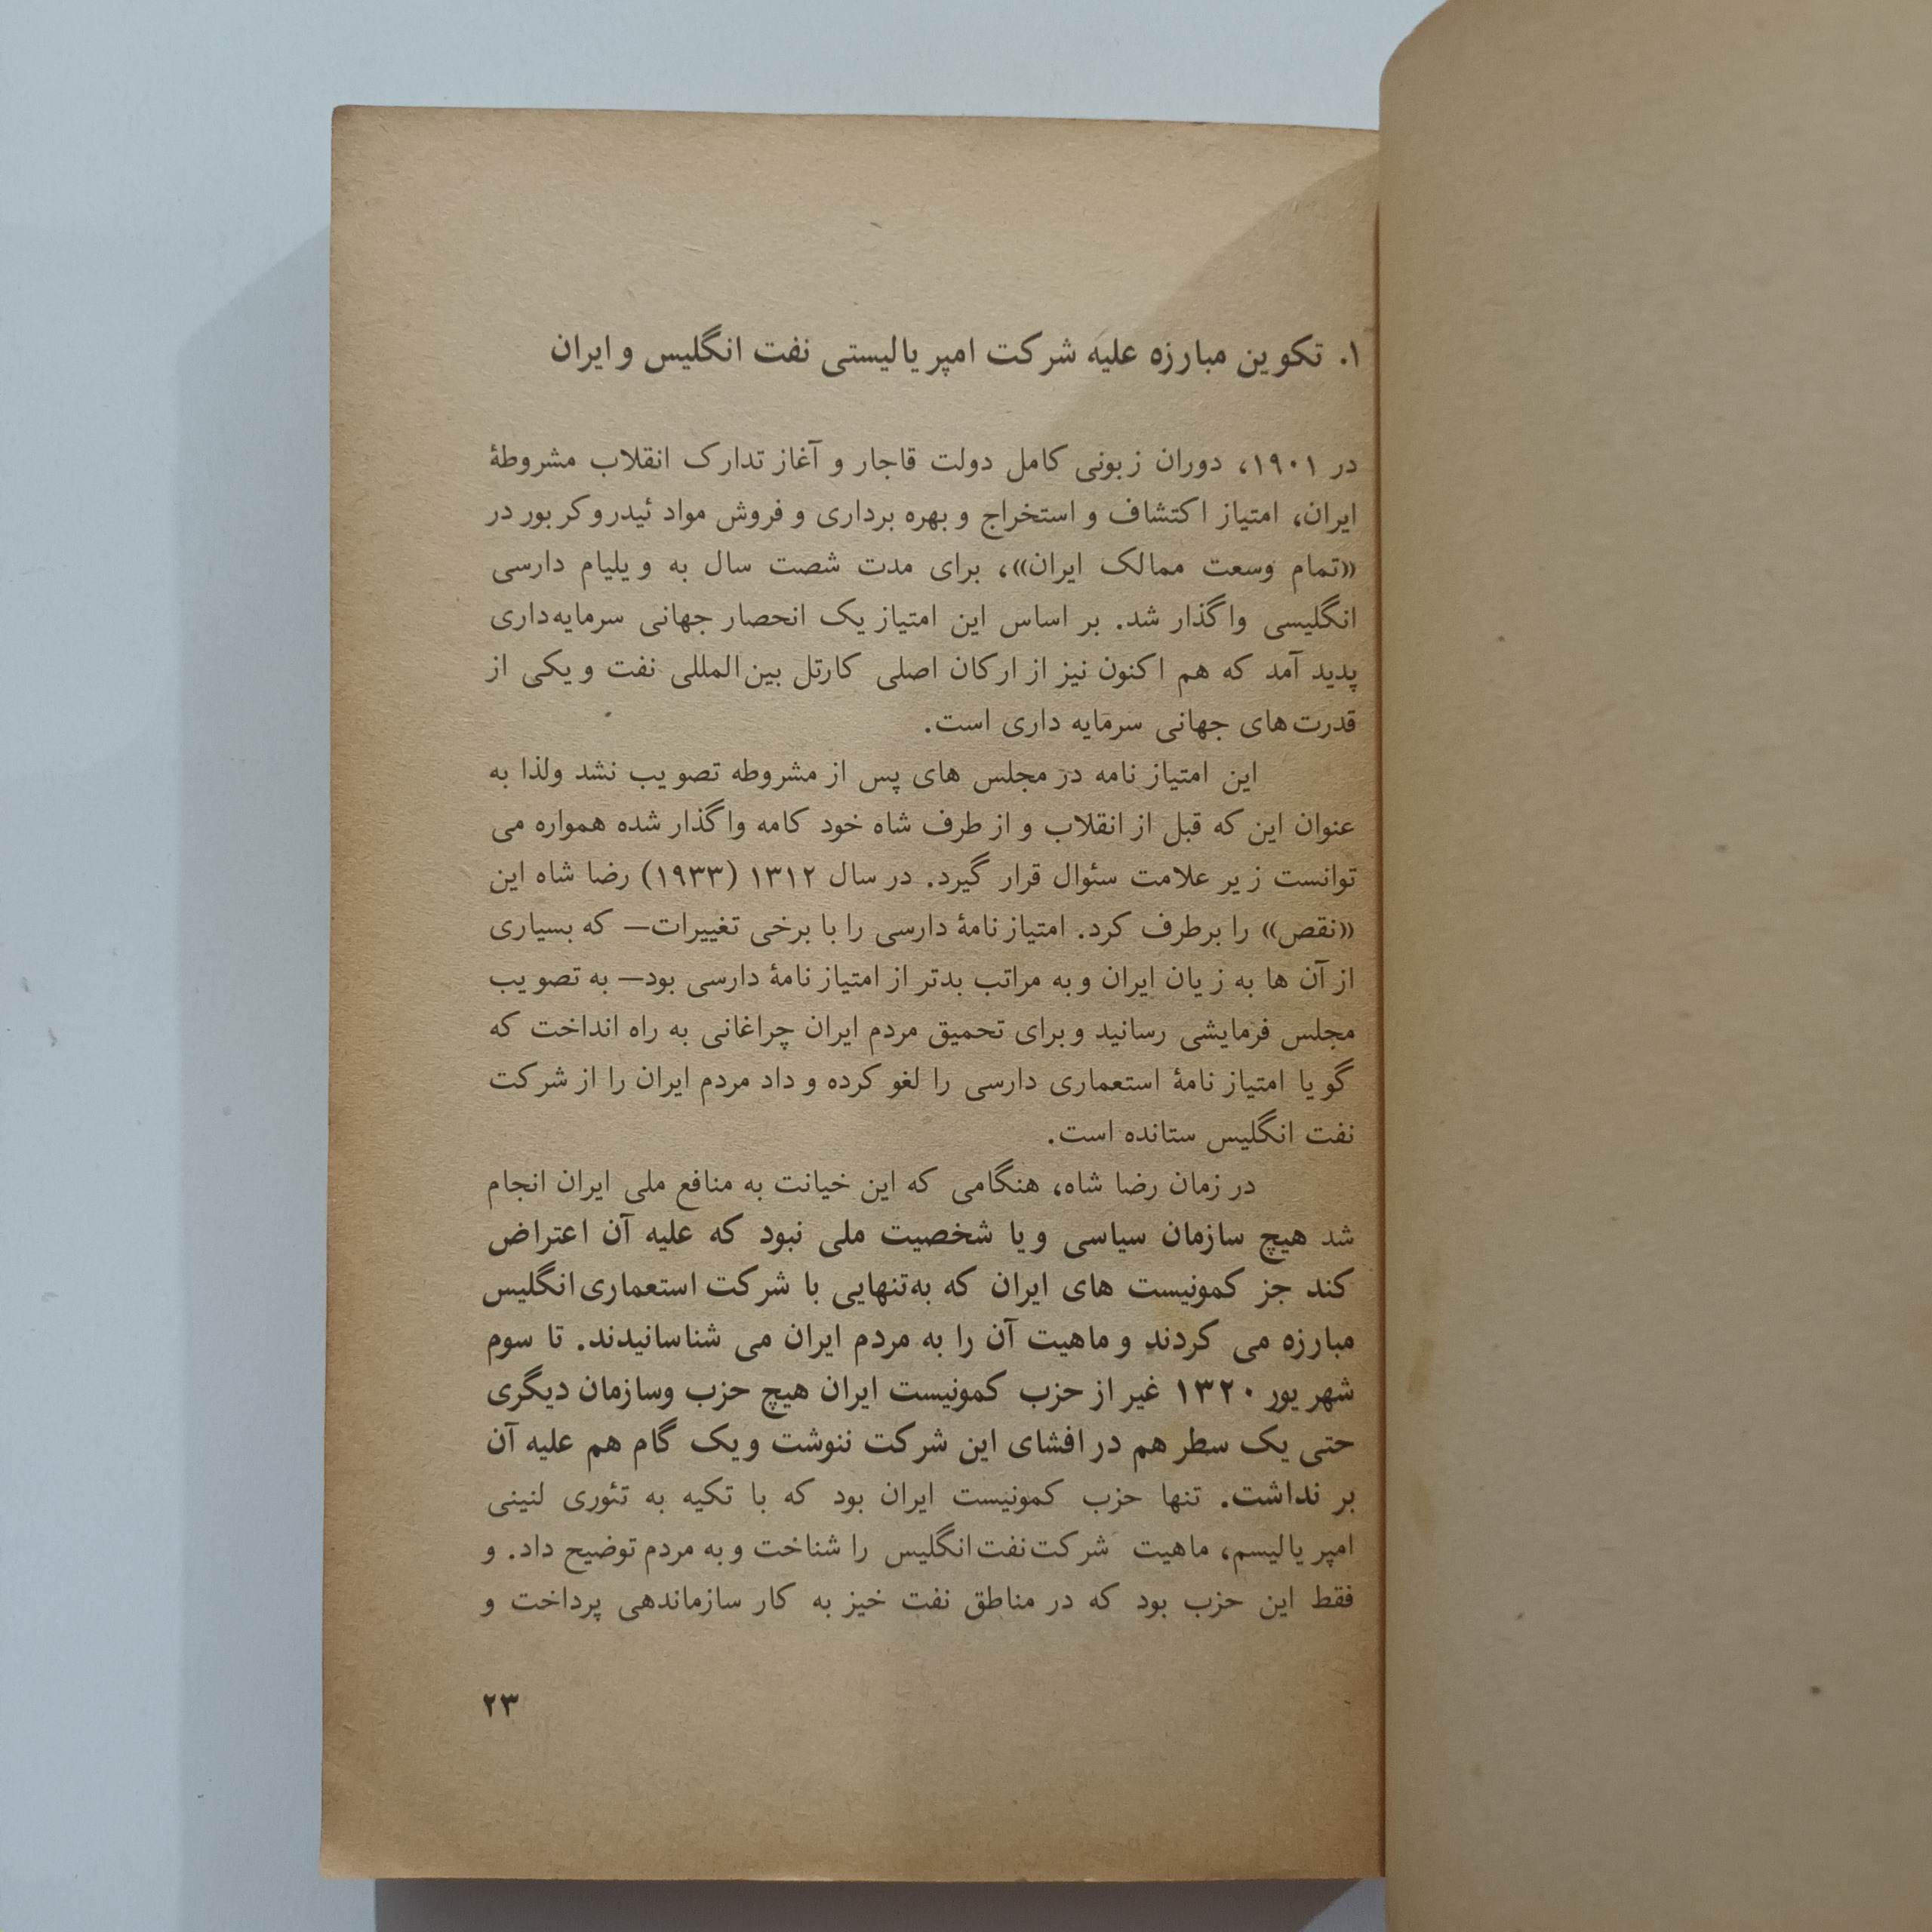 ۱. تکوین مبارزه علیه شرکت امپریالیستی نفت انگلیس و ایران
در ۱۹۰۱، دوران زبونی کامل دولت قاجار و آغاز تدارک انقلاب مشروطهٔ
ایران، امتیاز اکتشاف و استخراج و بهره برداری و فروش مواد ئیدروکربور در
«تمام وسعت ممالک ایران»، برای مدت شصت سال به ویلیام دارسی
انگلیسی واگذار شد. بر اساس این امتیاز یک انحصار جهانی سرمایه‌داری
پدید آمد که هم اکنون نیز از ارکان اصلی کارتل بین‌المللی نفت و یکی از
قدرت‌های جهانی سرمایه داری است.
این امتیاز نامه در مجلس های پس از مشروطه تصویب نشد ولذا به
عنوان این که قبل از انقلاب و از طرف شاه خود کامه واگذار شده همواره می
توانست زیر علامت سئوال قرار گیرد. در سال ۱۳۱۲ (۱۹۳۳) رضا شاه این
«نقص» را برطرف کرد. امتیاز نامهٔ دارسی را با برخی تغییرات— که بسیاری
از آن ها به زیان ایران و به مراتب بدتر از امتیاز نامهٔ دارسی بود— به تصویب
مجلس فرمایشی رسانید و برای تحمیق مردم ایران چراغانی به راه انداخت که
گویا امتیاز نامهٔ استعماری دارسی را لغو کرده و داد مردم ایران را از شرکت
نفت انگلیس ستانده است.
در زمان رضا شاه، هنگامی که این خیانت به منافع ملی ایران انجام
شد هیچ سازمان سیاسی و یا شخصیت ملی نبود که علیه آن اعتراض
کند جز کمونیست های ایران که به‌تنهایی با شرکت استعماری انگلیس
مبارزه می کردند و ماهیت آن را به مردم ایران می شناسانیدند. تا سوم
شهریور ۱۳۲۰ غیر از حزب کمونیست ایران هیچ حزب وسازمان دیگری
حتی یک سطر هم در افشای این شرکت ننوشت و یک گام هم علیه آن
بر نداشت. تنها حزب کمونیست ایران بود که با تکیه به تئوری لنینی
امپریالیسم، ماهیت شرکت نفت انگلیس را شناخت و به مردم توضیح داد. و
فقط این حزب بود که در مناطق نفت خیز به کار سازماندهی پرداخت و
۲۳